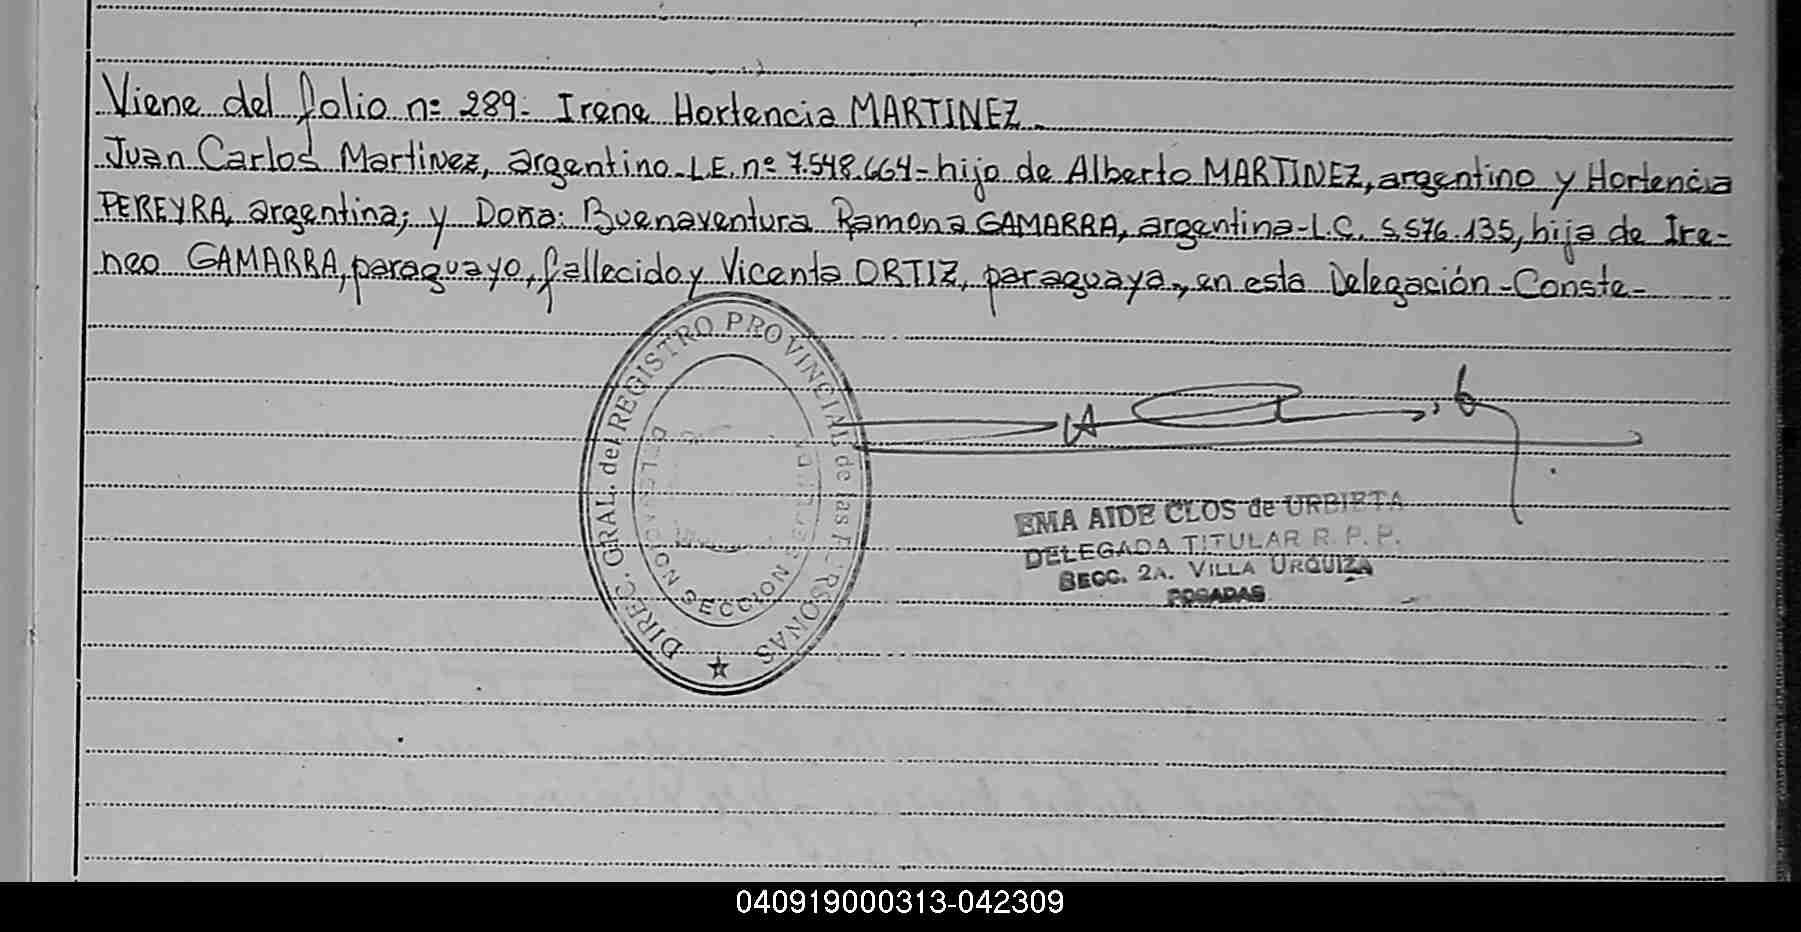 Viene del folio nº 289. Irene Hortencia MARTINEZ.
Juan Carlos Martinez, argentino-L.E. nº 7.548.664-hijo de Alberto MARTINEZ, argentino y Hortencia
PEREYRA, argentina; y Doña: Buenaventura Ramona GAMARRA, argentina-L.C. 5.576.135, hija de Ire-
neo GAMARRA, paraguayo, fallecido y Vicenta ORTIZ, paraguaya, en esta Delegación-Conste-
DIREC. GRAL. del REGISTRO PROVINCIAL de las PERSONAS
SECCION
EMA AIDE CLOS de URBIETA
DELEGADA TITULAR R. P. P.
SECC. 2A. VILLA URQUIZA
POSADAS
040919000313-042309